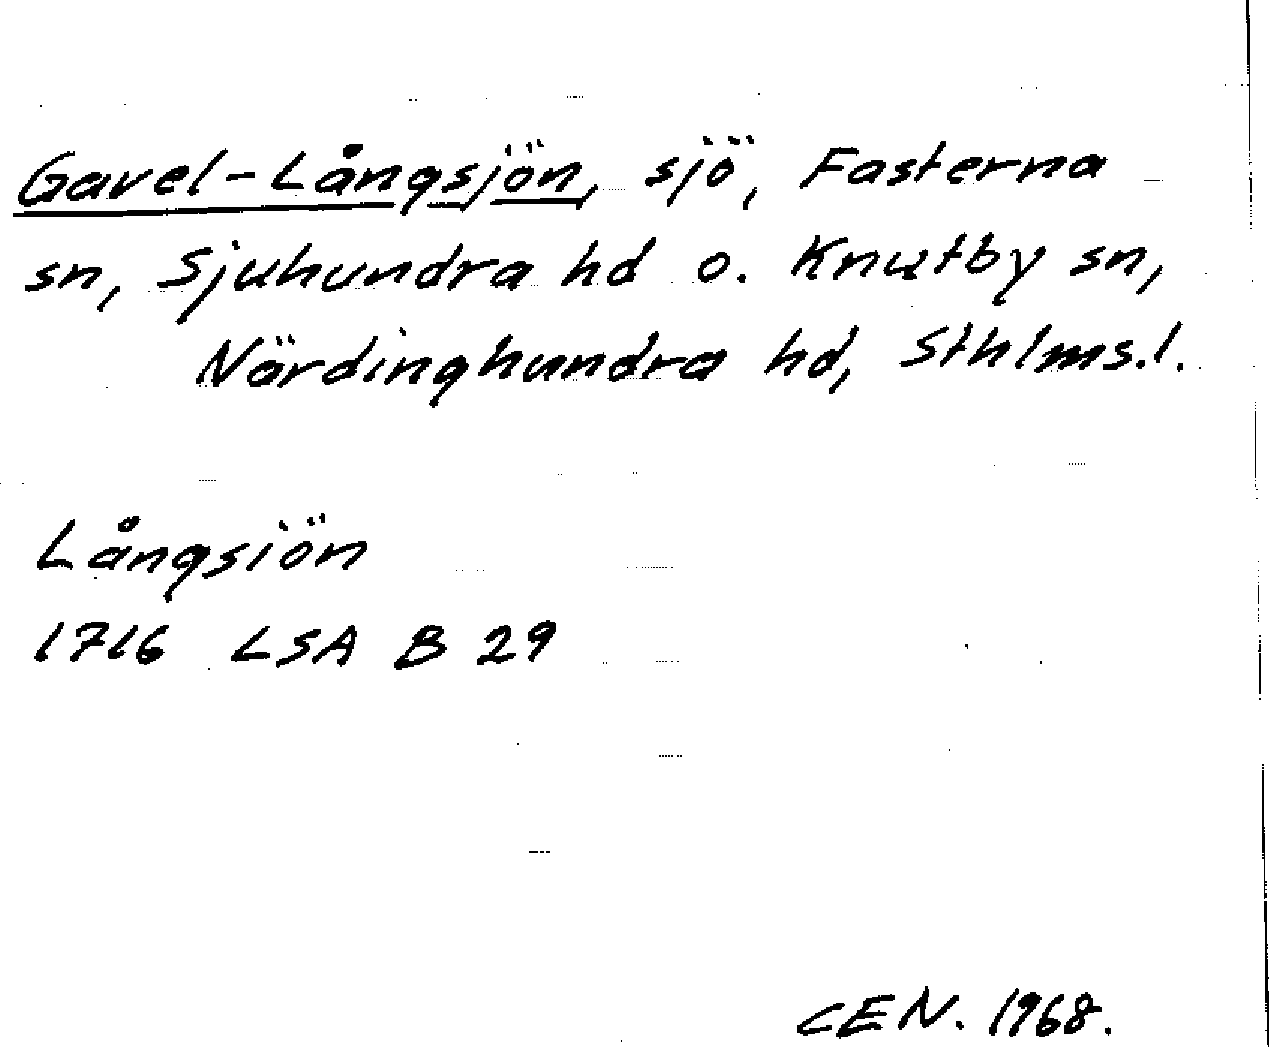 Gavel-Långsjön, sjö, Fasterna
sn, Sjuhundra hd o. Knutby sn,
Närdinghundra hd, Sthlms.l.
Långsiön
1716 LSA B 29
CEN. 1968.